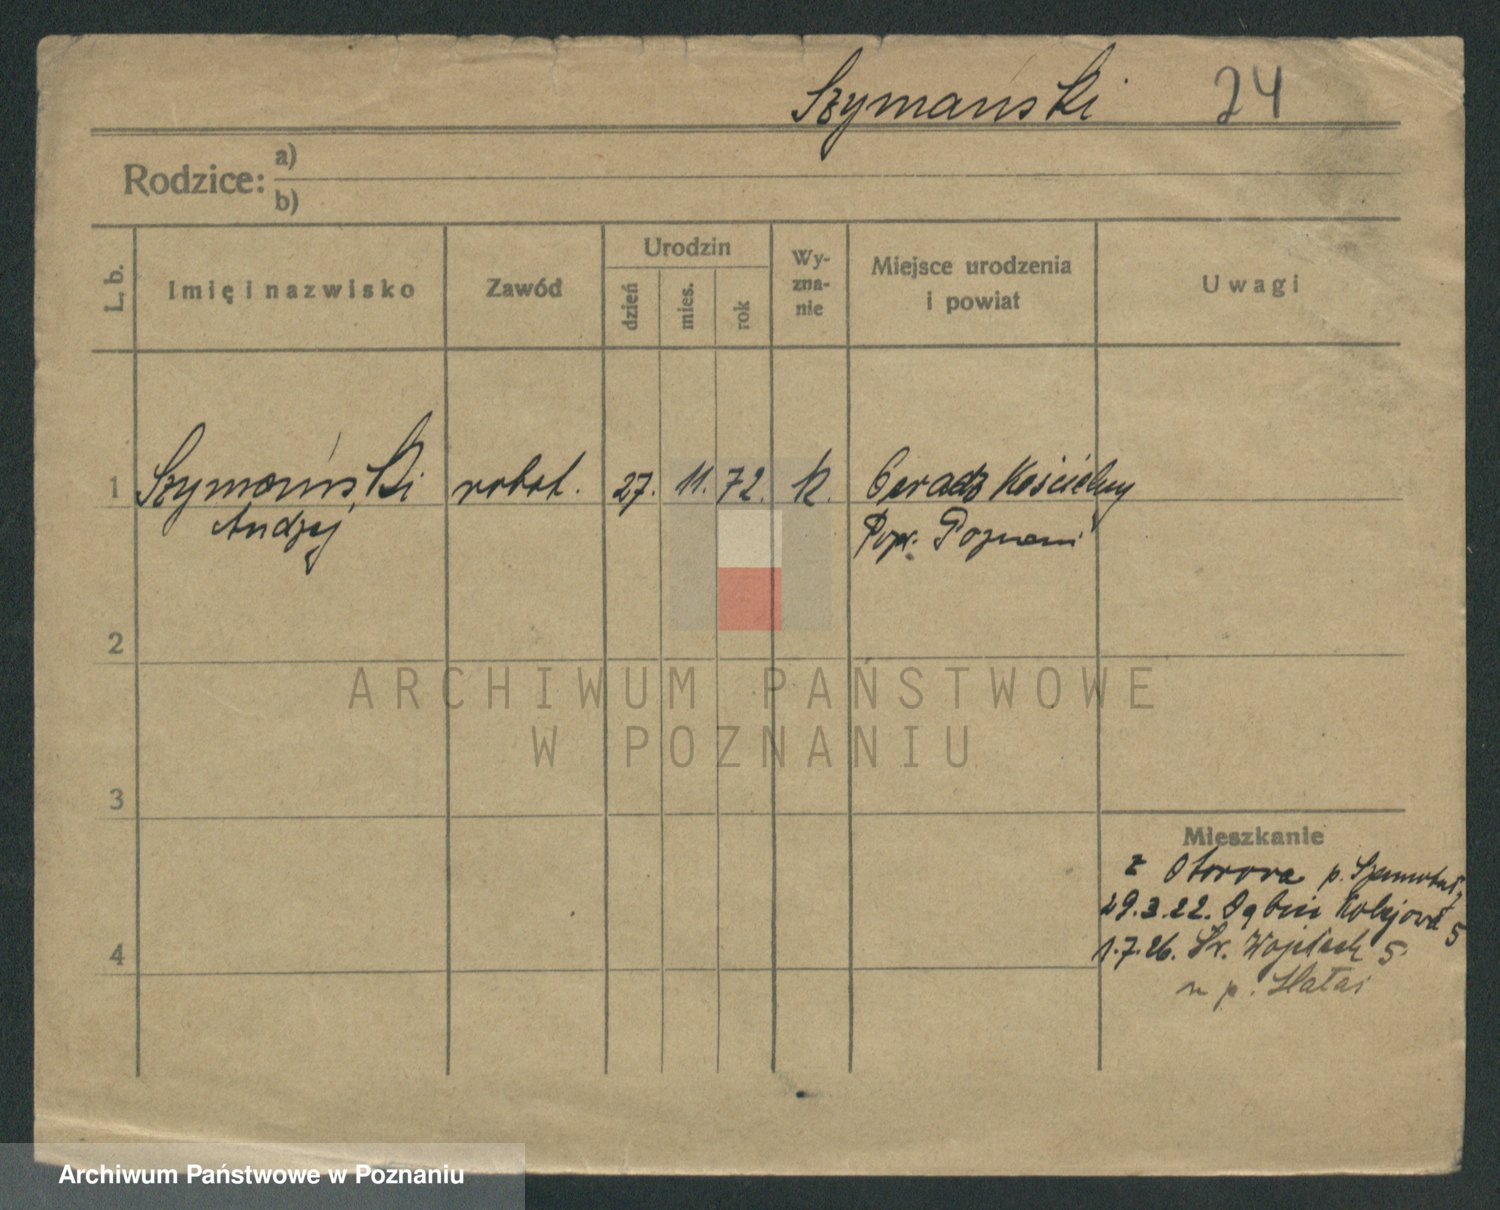 Szymański 24
Rodzice: a)
b)
L. b. Imię i nazwisko Zawód Urodzin dzień mies. rok Wy-zna-nie Miejsce urodzenia i powiat Uwagi
1 Szymański robot. 27. 11. 72. k. Ceradz Kościelny
Andrzej Pow. Poznań
2
ARCHIWUM PAŃSTWOWE
W POZNANIU
3
Mieszkanie
z Otorowa p. Szamotuły
29.3.22. Kolejowa 5
4
1.7.26. Św. Wojciech 5
u p.
Archiwum Państwowe w Poznaniu